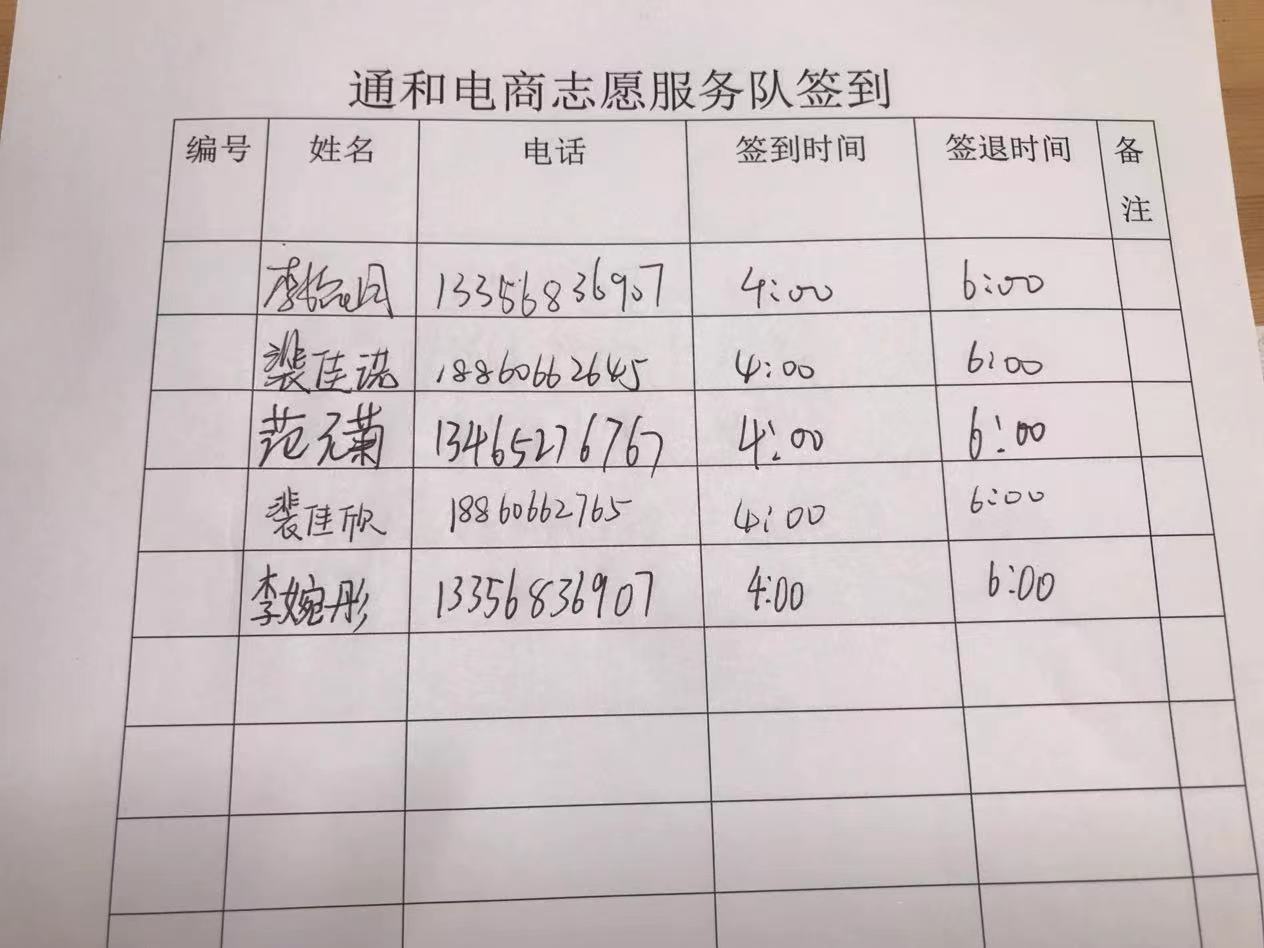 通和电商志愿服务队签到
编号 姓名 电话 签到时间 签退时间 备注
李 13356836907 4:00 6:00
裴佳诺 18860662645 4:00 6:00
范元菊 13465276767 4:00 6:00
裴佳欣 18860662765 4:00 6:00
李婉彤 13356836907 4:00 6:00